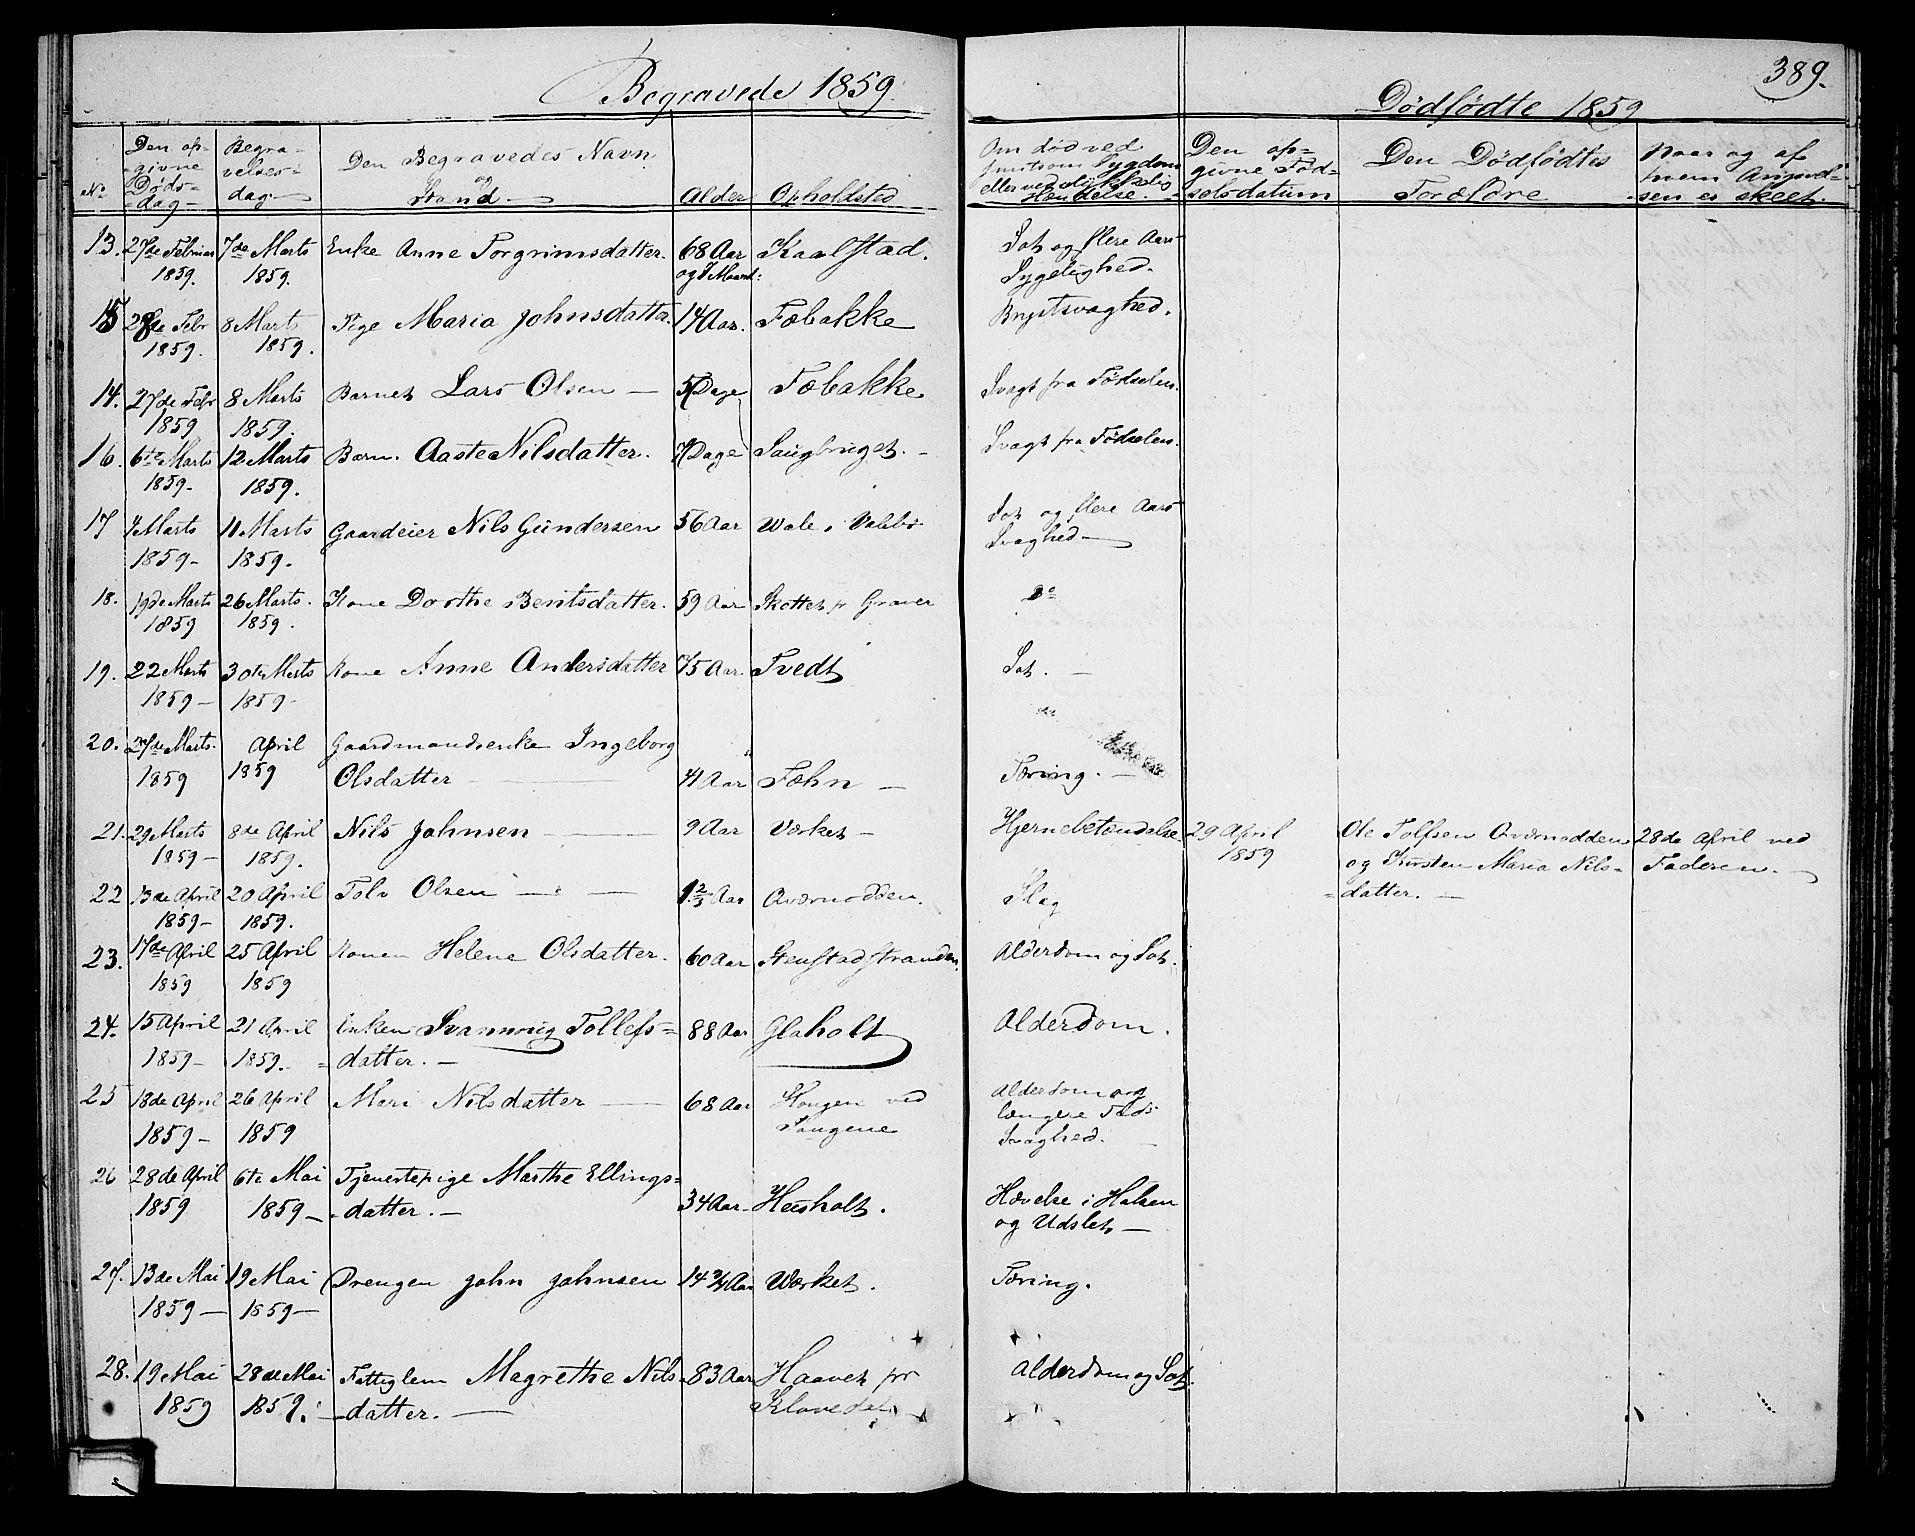 Begravede 1859.
389.
Dødfødte 1859
No
Den op-
givne
Døds-
dag
Begra-
velses-
dag
Den Begravedes Navn
og
Stand
Alder
Opholdsted
Om død ved
smitsom Sygdom
eller ved ulykkelig
Hændelse.
Den op-
givne Fød-
selsdatum
Den Dødfødtes
Forældre
Naar og af
hvem Anmeld-
sen er skeet.
13. 27de Februar 7de Marts Enke Anne Torgrimsdatter. 68 Aar Kaalstad. Sot og flere Aars
1859. 1859. og 7 Maaned: Sygelighed.
15 28de Febr 8 Marts Pige Maria Johnsdatter. 14 Aar. Fæbakke Brystsvaghed.
1859. 1859.
14. 27de Febr 8 Marts Barnet Lars Olsen — 5 Dage Fæbakke Svagt fra Fødselen.
1859 1859.
16. 6te Marts 12 Marts Barn. Aaste Nilsdatter. 7 Dage Saugbruget. Svagt fra Fødselen.
1859- 1859.
17 7 Marts 11 Marts Gaardeier Nils Gundersen 56 Aar Wale i Valebø Sot og flere Aars
1859- 1859. Svaghed
18. 19de Marts 26 Marts. Kone Dorthe Bentsdatter. 59 Aar Skottet pr Graver Do
1859 1859.
19. 22 Marts 30te Marts Kone Anne Andersdatter 75 Aar Tvedt Sot.
1859- 1859-
20. 27de Marts. April Gaardmandsenke Ingeborg
1859 1859 Olsdatter 41 Aar Fæhn — Tæring.
21. 29 Marts 8de April Nils Johnsen 9 Aar Værket — Hjernebetændelse. 29 April Ole Tolfsen Oværnodden 28de April ved
1859- 1859. 1859 og Kirsten Maria Nils- Faderen.
datter.
22 13de April 20 April Tolv Olsen 1 2/3 Aar Oværnodden. Slag
1859- 1859.
23. 17de April 25 April Konen Helene Olsdatter. 60 Aar Stenstadstranden. Alderdom og Sot.
1859 1859
24. 15 April 21 April Enken Svannoug Tollefs- 88 Aar Glaholt Alderdom.
1859- 1859. datter.
25 18de April 26 April Mari Nilsdatter 68 Aar Haugen ved Alderdom og
1859- 1859 Saugene længere Tids
Svaghed.
26 28de April 6te Mai Tjenestepige Marthe Ellings-
1859 1859- datter. 34 Aar. Heisholt. Hævelse i Halsen
og Udslet
27. 13de Mai 19 Mai Drengen John Johnsen 14 3/4 Aar Værket. Tæring.
1859- 1859-
28. 19 Mai 28de Mai Fattiglem Magrethe Nils- 83 Aar Haavet pr Alderdom og Sot.
1859 1859. datter. Klovedal